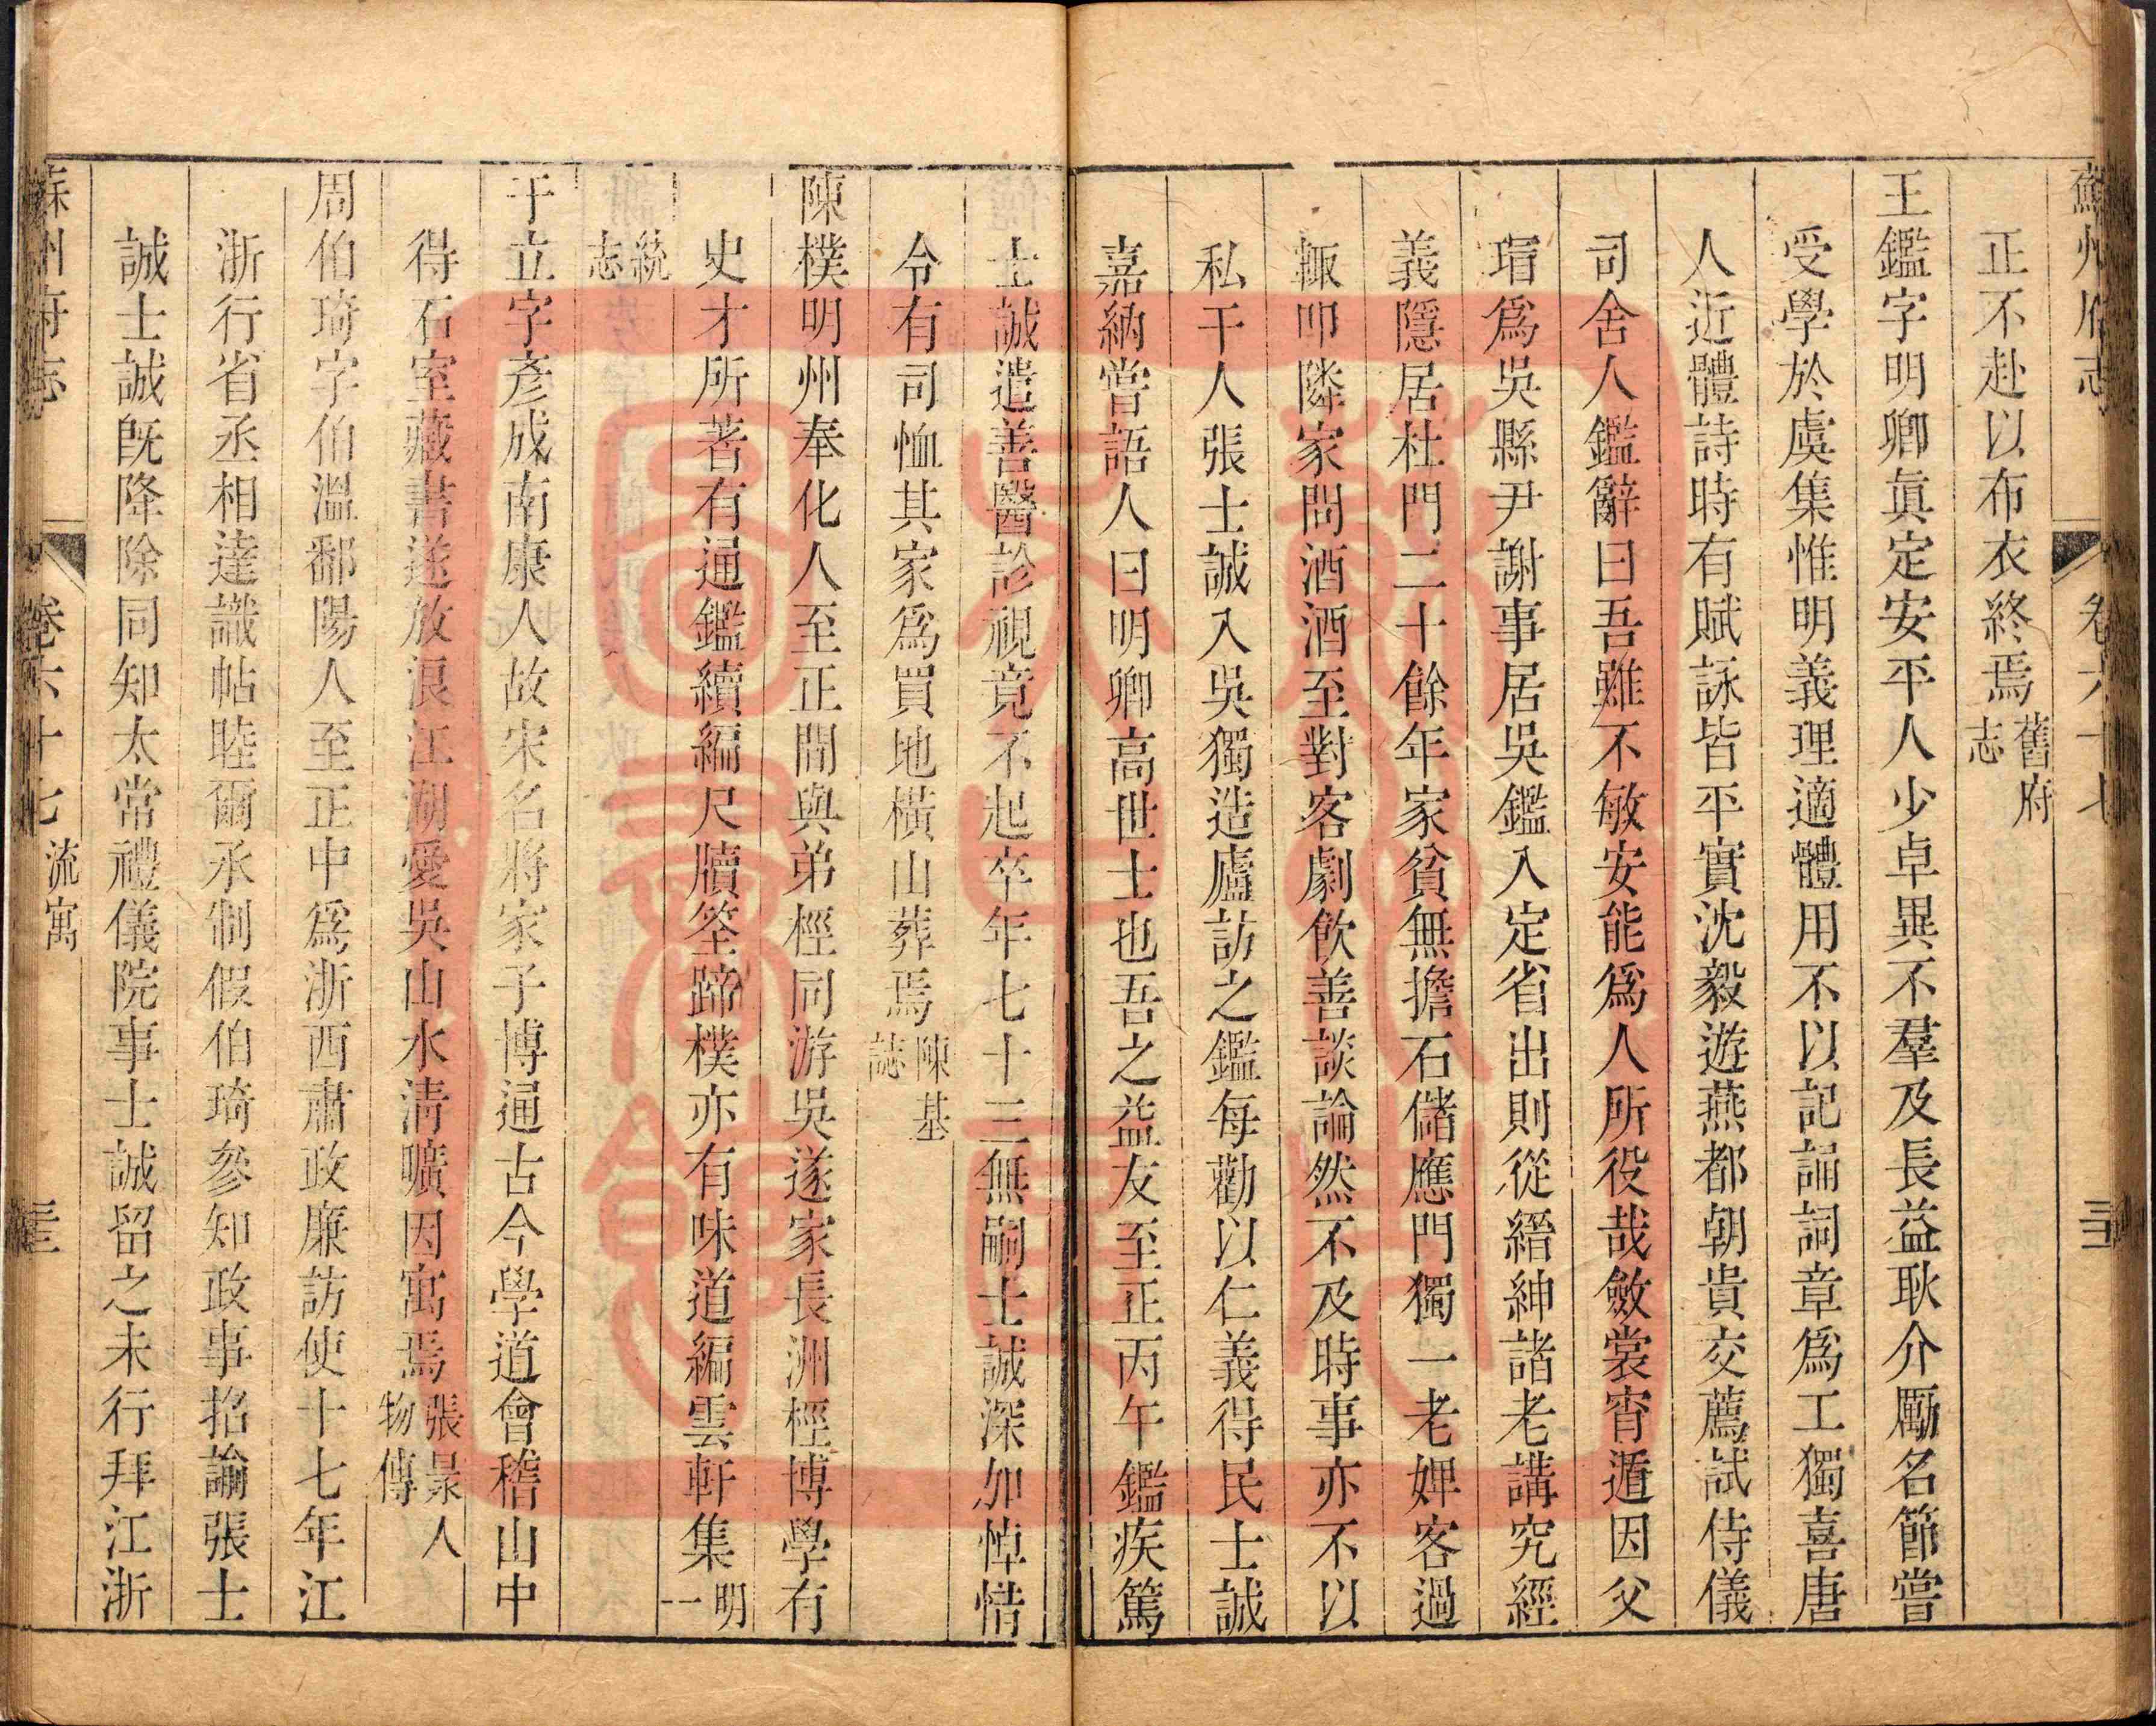 正不赴以布衣終焉舊府志
王鑑字明卿眞定安平人少卓異不羣及長益耿介勵名節嘗
受學於虞集惟明義理適體用不以記誦詞章爲工獨喜唐
人近體詩時有賦詠皆平實沈毅遊燕都朝貴交薦試侍儀
司舍人鑑辭曰吾雖不敏安能爲人所役哉斂裳宵遁因父
瑁爲吳縣尹謝事居吳鑑入定省出則從縉紳諸老講究經
義隱居杜門二十餘年家貧無擔石儲應門獨一老婢客過
輙叩隣家問酒酒至對客劇飲善談論然不及時事亦不以
私干人張士誠入吳獨造廬訪之鑑每勸以仁義得民士誠
嘉納嘗語人曰明卿高世士也吾之益友至正丙午鑑疾篤
士誠遣善醫診視竟不起卒年七十三無嗣士誠深加悼惜
令有司恤其家爲買地橫山葬焉陳基誌
陳樸明州奉化人至正間與弟桱同游吳遂家長洲桱博學有
史才所著有通鑑續編尺牘筌蹄樸亦有味道編雲軒集明一
統志
于立字彥成南康人故宋名將家子博通古今學道會稽山中
得石室藏書遂放浪江湖愛吳山水淸曠因寓焉張㫤人物傳
周伯琦字伯溫鄱陽人至正中爲浙西肅政廉訪使十七年江
浙行省丞相達識帖睦爾承制假伯琦參知政事招諭張士
誠士誠旣降除同知太常禮儀院事士誠留之未行拜江浙
蘇州府志
卷六十七
流寓